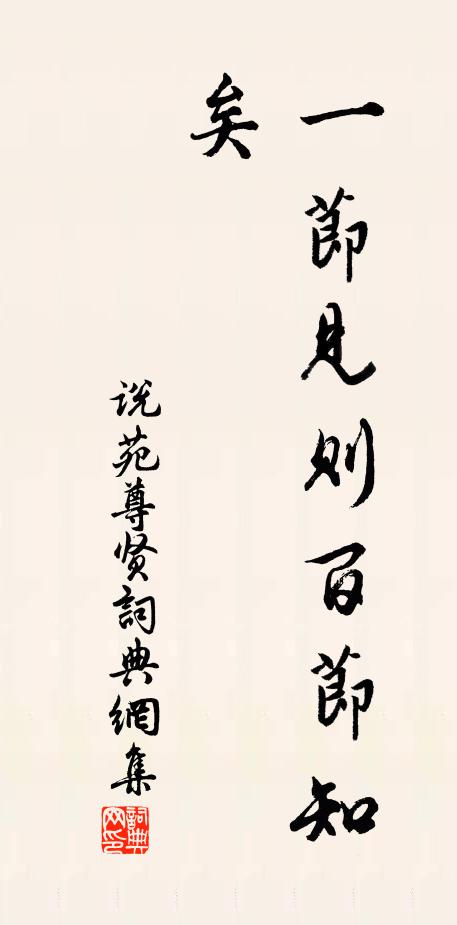 一節見则百節知
矣
说苑尊贤詞典網集
詞典网印